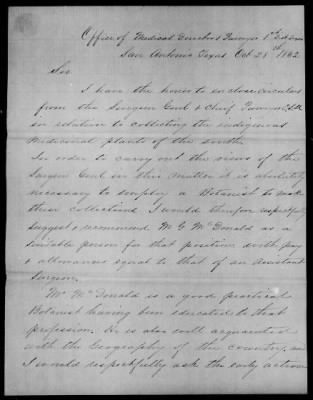 Office of Medical Director & Purveyor 1st
San Antonio Texas Oct 28th 1862
Sir
I have the honor to enclose circulars
from the Surgeon Genl & Chief Purveyor
in relation to collecting the indigenous
Medicinal plants of the south.
In order to carry out the views of the
Surgeon Genl in this matter it is absolutely
necessary to employ a Botanist to make
these collections I would therefore respectfully
suggest & recommend M. G. McDonald as a
suitable person for that position with pay
& allowances equal to that of an Assistant
Surgeon.
Mr McDonald is a good practical
Botanist having been educated to that
profession. He is also well acquainted
with the Geography of the country, and
I would respectfully ask the early action